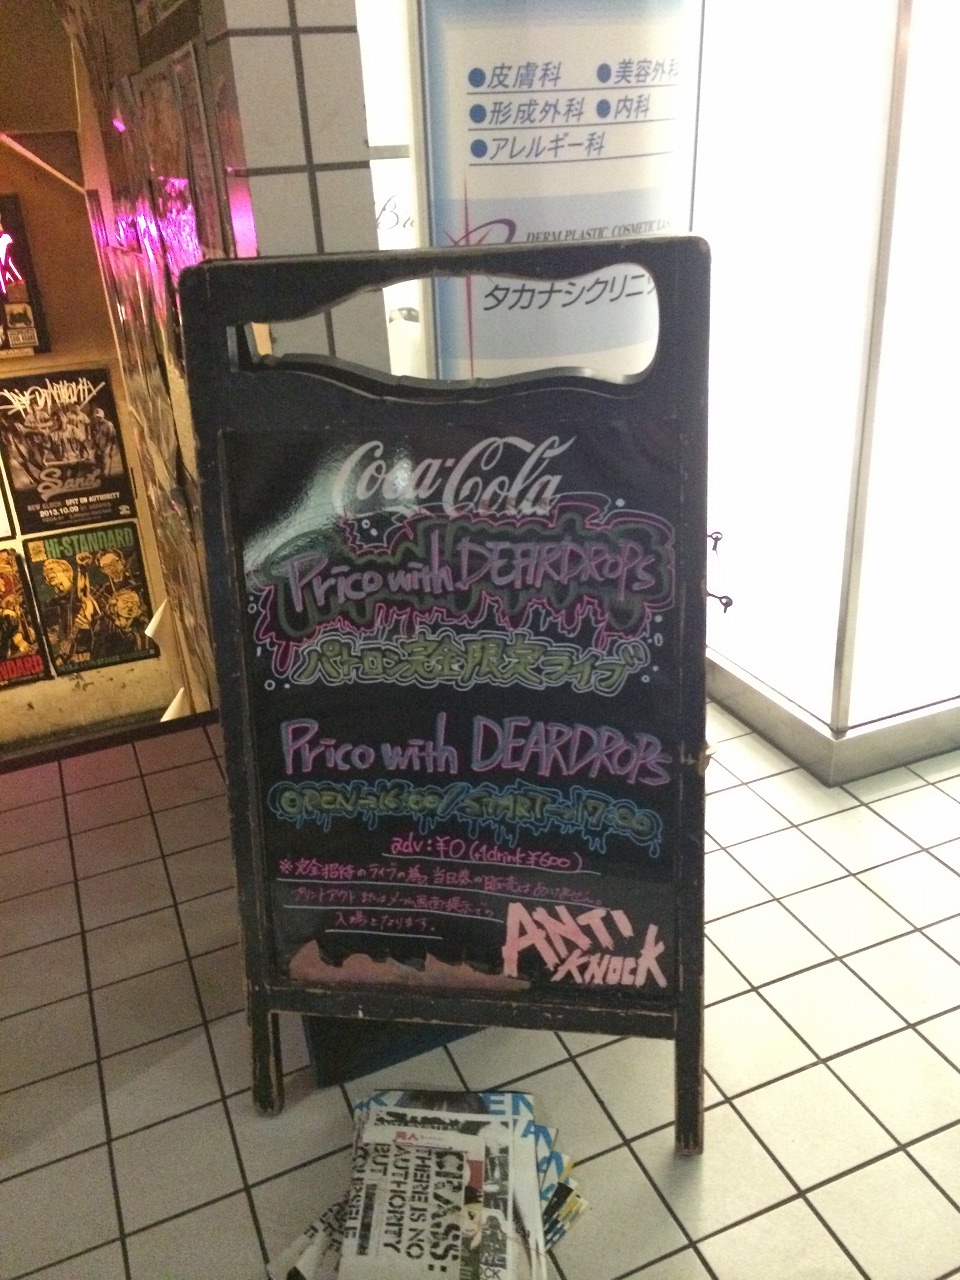 ●皮膚科 ●美容外科
●形成外科 ●内科
●アレルギー科
DERM.PLASTIC COSMETIC
タカナシクリニッ
Coca-Cola
Prico with DEARDROPS
パトロン完全限定ライブ
Prico with DEARDROPS
OPEN→16:00/START→17:00
adv:¥0(+1drink¥600)
※完全招待のライブの為、当日券の販売はありません。
プリントアウトまたはメール画面提示での
入場となります。
ANTI
KNOCK
Sand
NEW ALBUM SPIT ON AUTHORITY
2013.10.09
HI-STANDARD
NDARD
CRASS:
THERE IS NO
AUTHORITY
BUT
YOURSELF